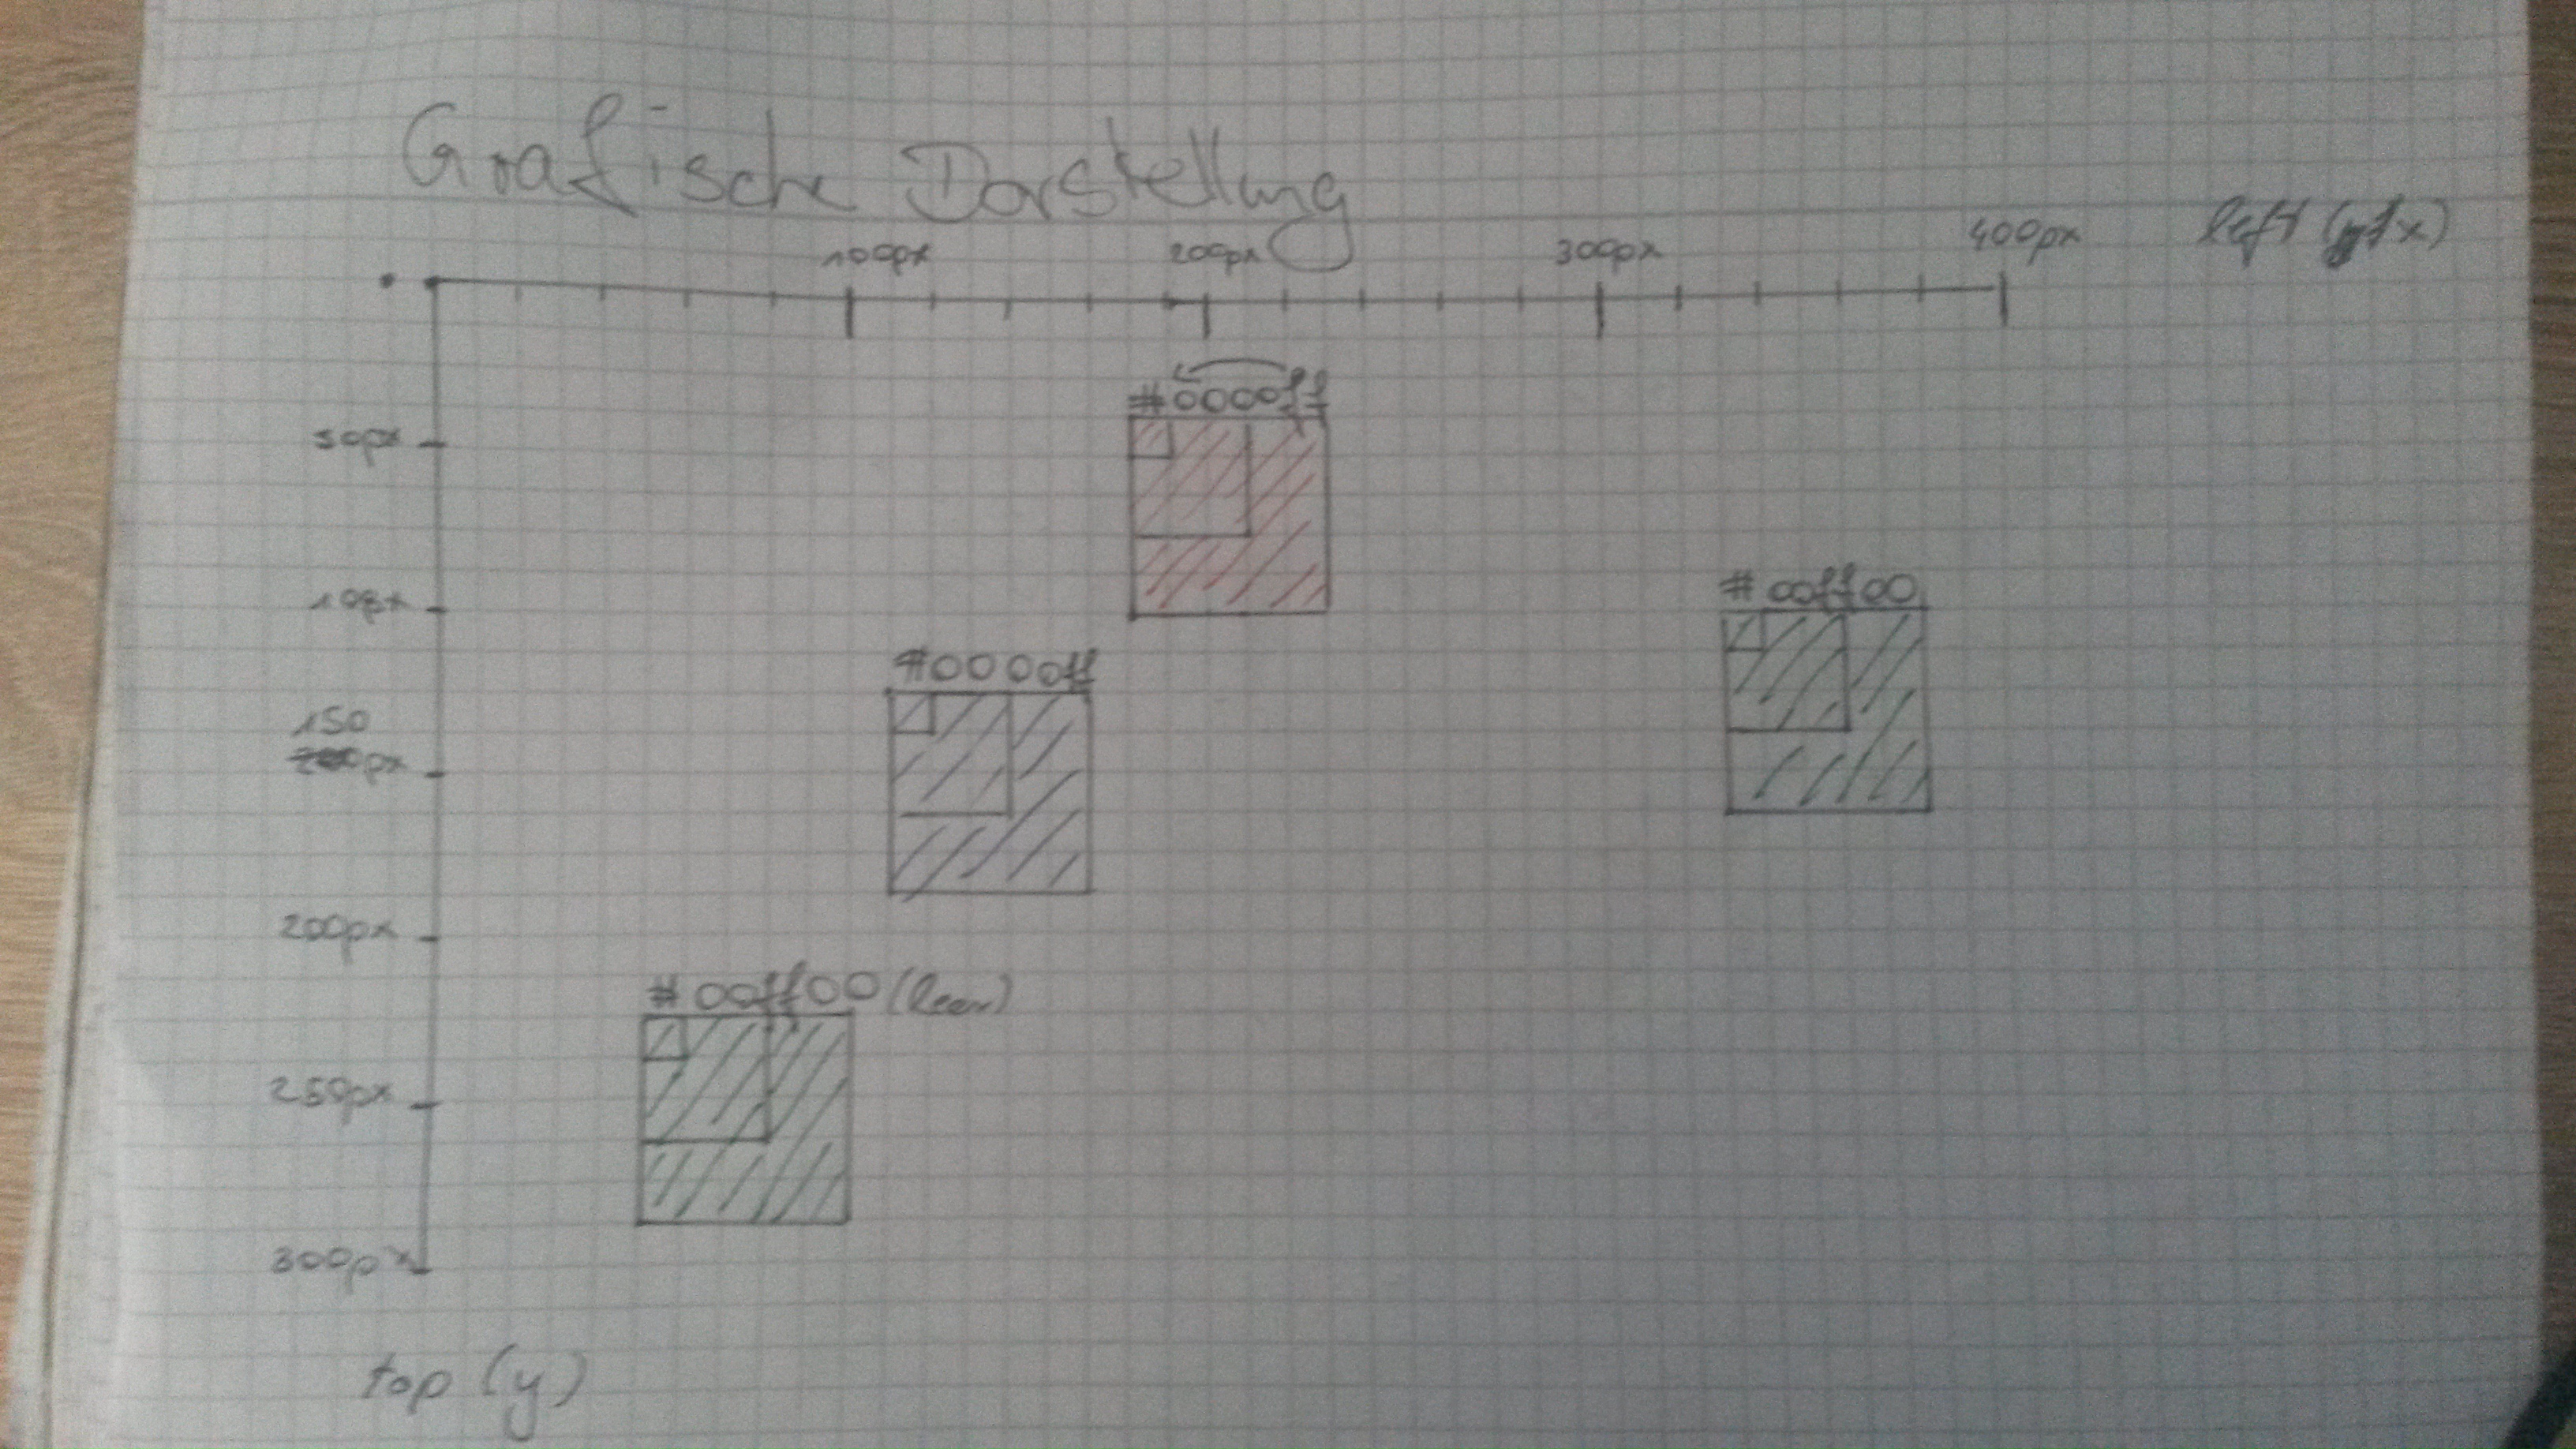 Grafische Darstellung
100px 200px 300px 400px left (x)
50px
100px
150
200px
250px
300px
top (y)
#0000ff
#00ff00
#0000ff
#00ff00 (leer)